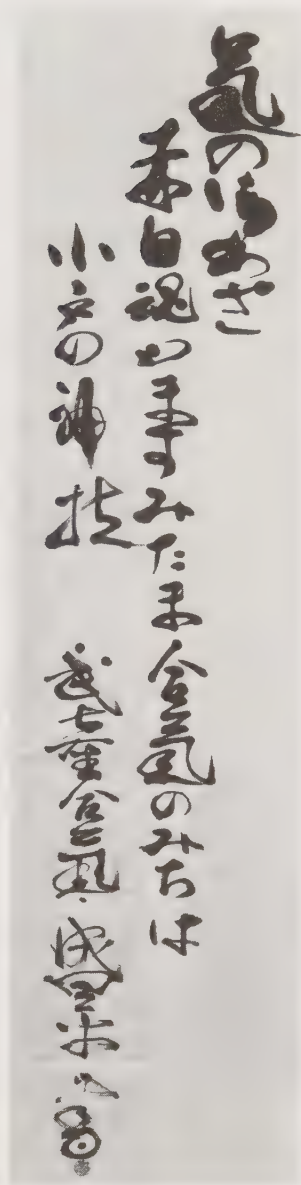 氣の御わざ
赤白魂やますみたま 合氣のみちは
小戸の神技 武産合氣